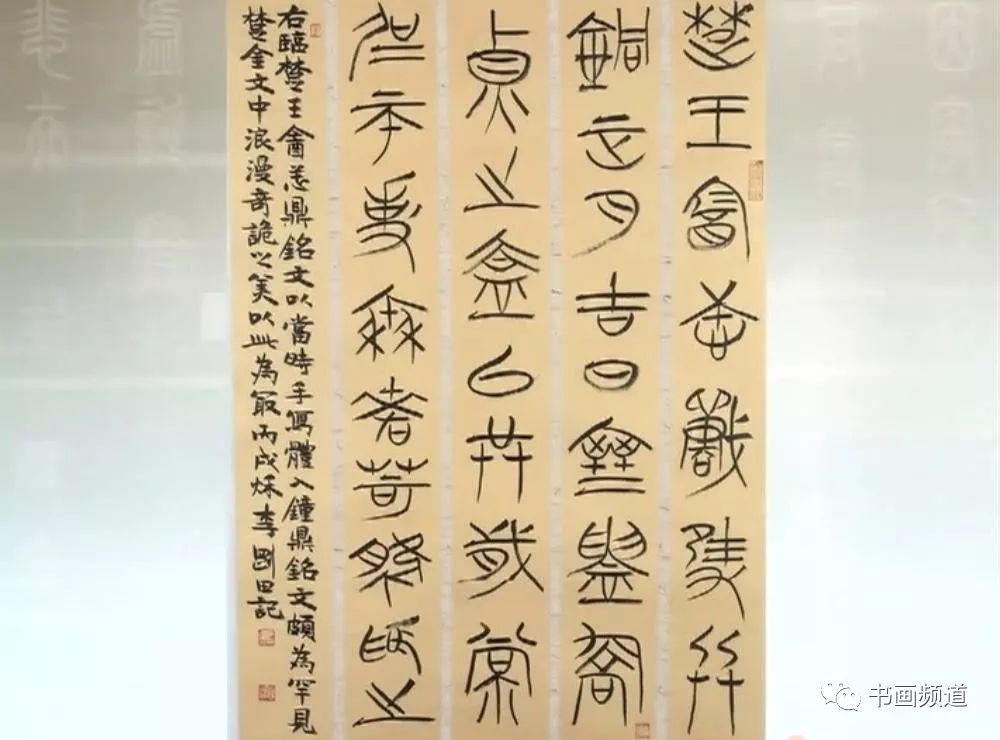 楚王酓忎戰隻兵
銅正月吉日窒鑄喬
貞之盍以共歲棠
但帀吏秦差苛腏為之
右臨楚王酓忎鼎銘文以當時手寫體入鐘鼎銘文頗為罕見
楚金文中浪漫奇詭之美以此為最丙戌秋李剛田記
书画频道